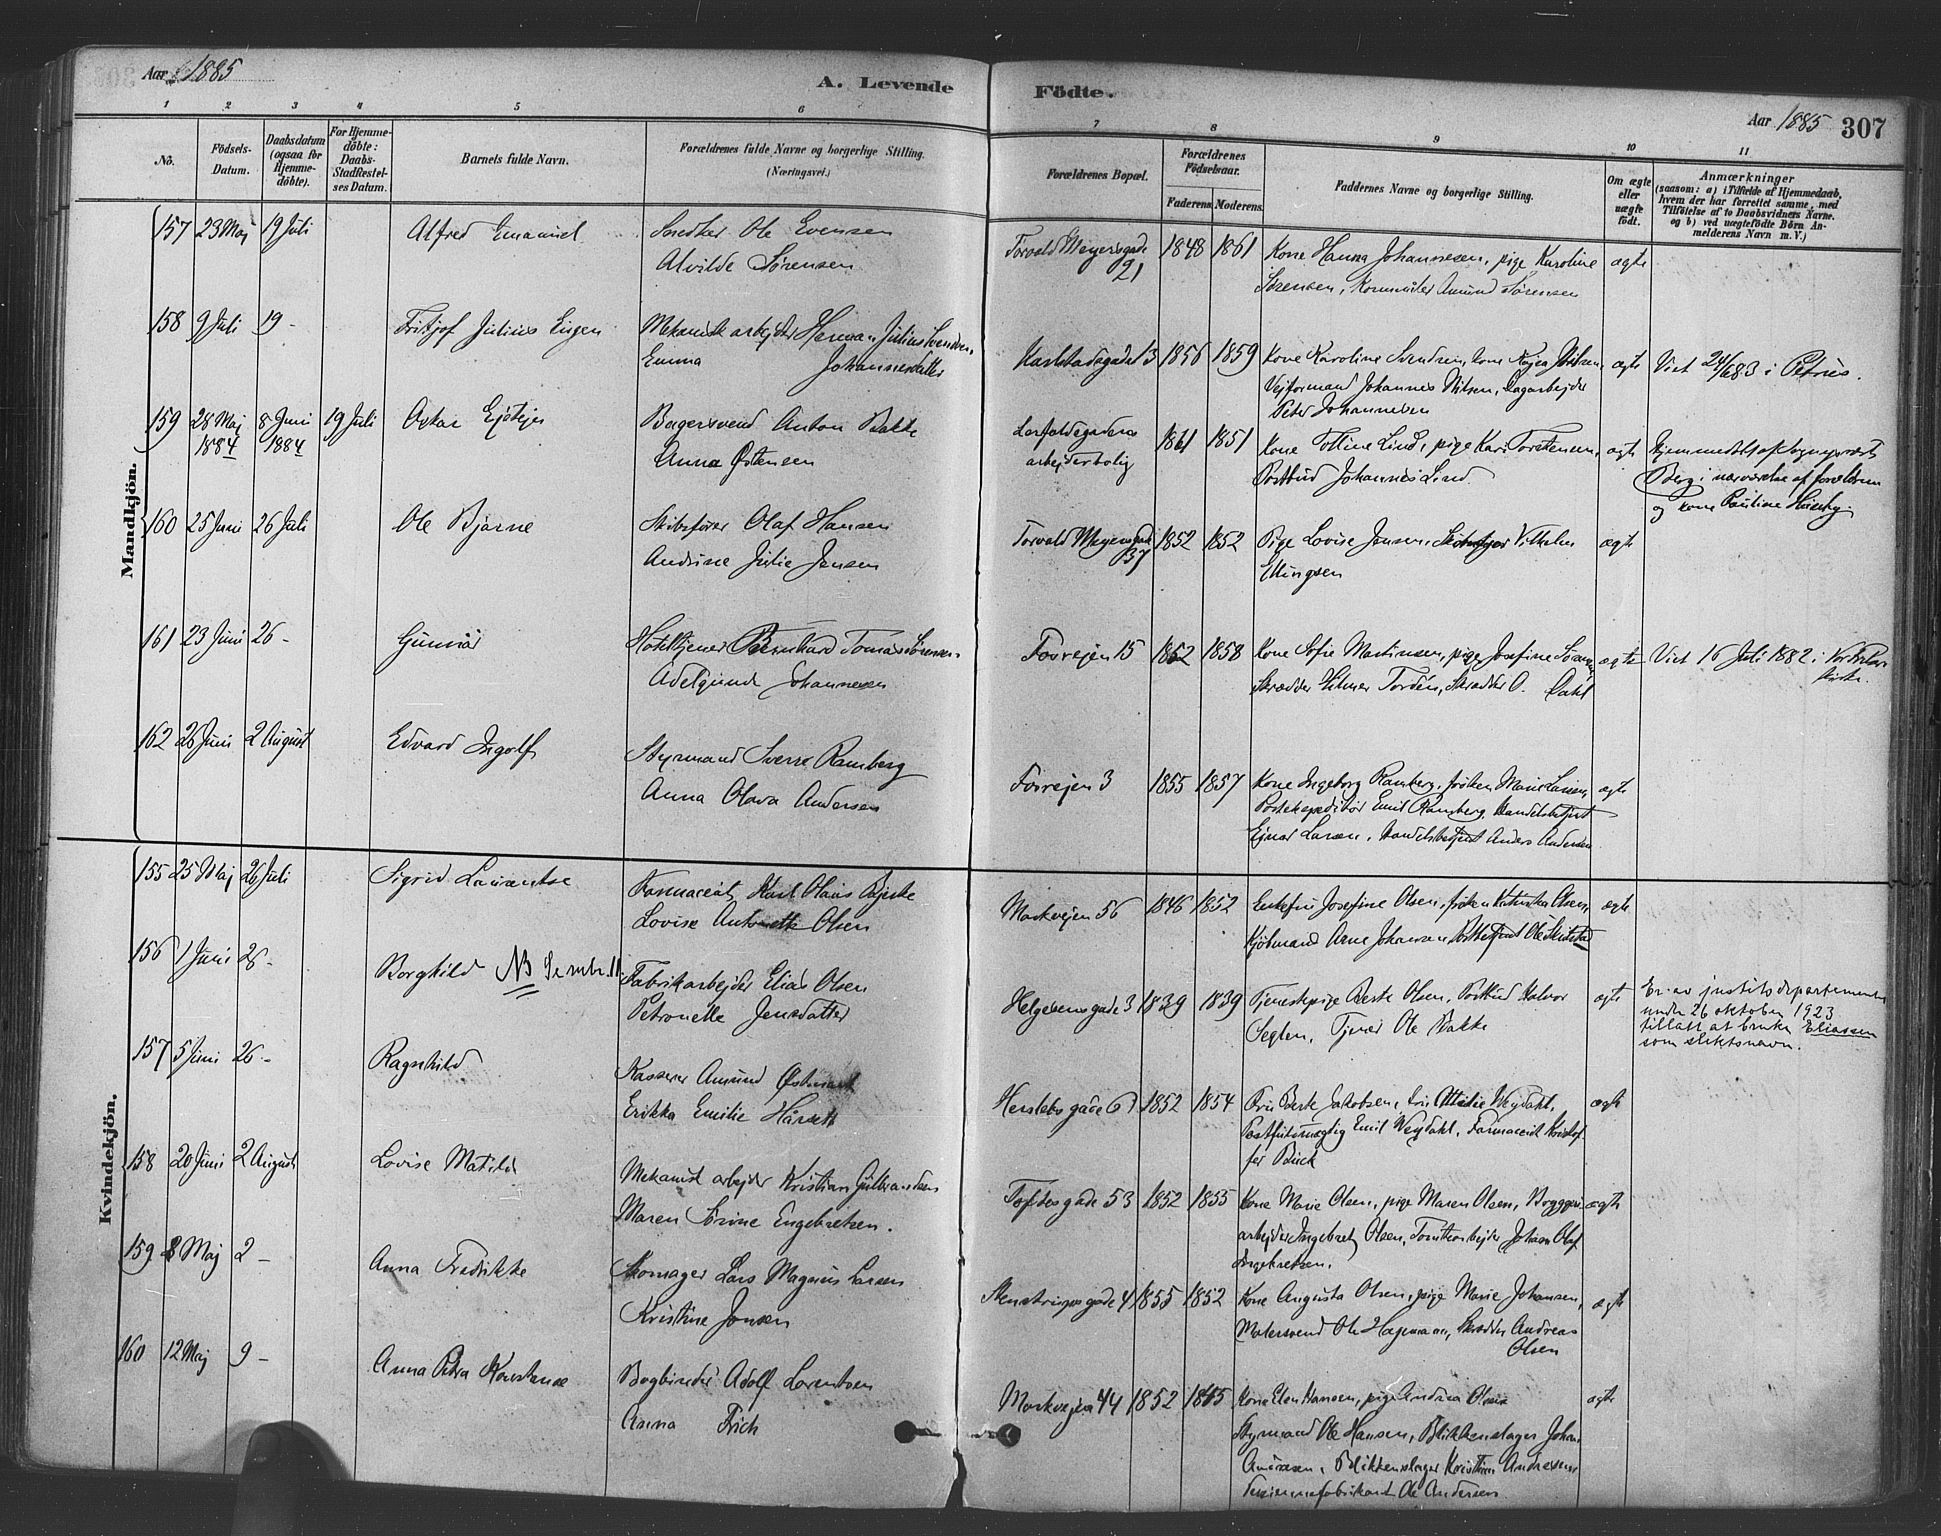 Aar 1885
A. Levende
Födte.
Aar 1885
307
1 2 3 4 5 6 7 8 9 10 11
No.
Födsels-
Datum.
Daabsdatum
(ogsaa for
Hjemme-
döbte).
For Hjemme-
döbte:
Daabs-
Stadfæstel-
ses Datum.
Barnets fulde Navn.
Forældrenes fulde Navne og borgerlige Stilling.
(Næringsvei.)
Forældrenes Bopæl.
Forældrenes
Födselsaar.
Faderens.
Moderens.
Faddernes Navne og borgerlige Stilling.
Om ægte
eller
uægte
födt.
Anmærkninger
(saasom: a) i Tilfælde af Hjemmedaab,
hvem der har forrettet samme, med
Tilföielse af to Daabsvidners Navne.
og b) ved uægtefödte Börn An-
melderens Navn m. V.)
Mandkjön.
157 23 Maj 19 Juli Alfred Emanuel Snedker Ole Evensen
Alvilde Sørensen
Torvald Meyersgade
21
1848 1861 Kone Hanna Johannesen, pige Karoline
Sørensen, Amund Sørensen
ægte
158 9 Juli 19 - Fritjof Julius Eugen Mekanisk arbejder Herman Julius Svendsen
Emma Johannesdatter
Karlstadsgade 13 1856 1859 Kone Karoline Svendsen, kone Nilsen,
Vejformand Johannes Nilsen, Dagarbejder
Peter Johannesen
ægte Viet 24/6 83 i Petrus.
159 28 Maj 8 Juni 19 Juli Oskar Bagersvend Anton Bakke
1884 1884 Anna Østensen
arbejderbolig
1861 1851 Kone Lind, pige Kari Torstensen,
Postbud Johannes Lind.
ægte Hjemmedøbt af
Berg i nærværelse af forældrene
og kone Pauline
160 25 Juni 26 Juli Ole Bjarne Skibsfører Olaf Hansen
Andrine Julie Jensen
Torvald Meyersgade
37
1852 1852 Pige Lovise Jensen, Vilhelm
Ellingsen
ægte
161 23 Juni 26 - Gunnar Hoteltjener Bernhard Tomas Sørensen.
Adelgunde Johannesen
Fosvejen 15 1852 1858 Kone Sofie Martinsen, pige Josefine Sørensen
Skrædder Hilmer Tordén, Skrædder O. Dahl
ægte Viet 16 Juli 1882 i
kirke.
162 26 Juni 2 August Edvard Ingolf Styrmand Sverre Ramberg
Anna Olava Andersen
Fosvejen 3 1855 1857 Kone Ingeborg Ramberg, frøken Marie Larsen,
Postekspeditør Emil Ramberg, Handelsbetjent
Ejnar Larsen, Handelsbetjent Anders Andersen
ægte
Kvindekjön.
155 25 Maj 26 Juli Sigrid Laurentse Farmaceut Karl Olaus Bjerke
Lovise Antonette Olsen
Markvejen 56 1846 1852 Enkefru Josefine Olsen, frøken Olsen,
Kjøbmand Arne Johansen, Postbetjent Ole
ægte
156 1 Juni 26 - Borghild NB Se mrk. 11. Fabrikarbejder Elias Olsen
Petronelle Jensdatter
Helgesensgade 3 1839 1839 Tjenestepige Berte Olsen, Postbud Halvor
Seglen, Tjener Ole Bakke
ægte Er av justitsdepartementet
under 26 oktober 1923
tillatt at bruke Eliassen
som slektsnavn.
157 5 Juni 26 - Ragnhild Kasserer Amund Østmark
Erikka Emilie
Herslebs gade 6 1852 1854 Fru Berte Jakobsen, Fru Weydahl,
Postfuldmægtig Emil Weydahl, Farmaceut Kristof
fer Buck
ægte
158 20 Juni 2 August Lovise Matilde Mekanisk arbejder Kristian Gulbrandsen
Maren Sørine Engebretsen.
Toftesgade 53 1852 1855 Kone Marie Olsen, pige Maren Olsen, Bryggeri
arbejder Ingebret Olsen, Tomtearbejder Johan Olaf
Ingebretsen.
ægte
159 8 Maj 2 - Anna Fredrikke Skomager Lars Magnus Larsen
Kristine Jonsen
Stenstrupsgade 4 1855 1852 Kone Augusta Olsen, pige Marie Johansen,
Malersvend Ole Hagemann, Skrædder Andreas
Olsen
ægte
160 12 Maj 9 - Anna Petra Konstanse Bogbinder Adolf Lorentsen
Anna Frich
Markvejen 44 1852 1845 Kone Elen Hansen, pige Andrea Olsen
Styrmand Ole Hansen, Blikkenslager Johan
Andresen, Blikkenslager Kristian Andresen
Ole Andersen
ægte